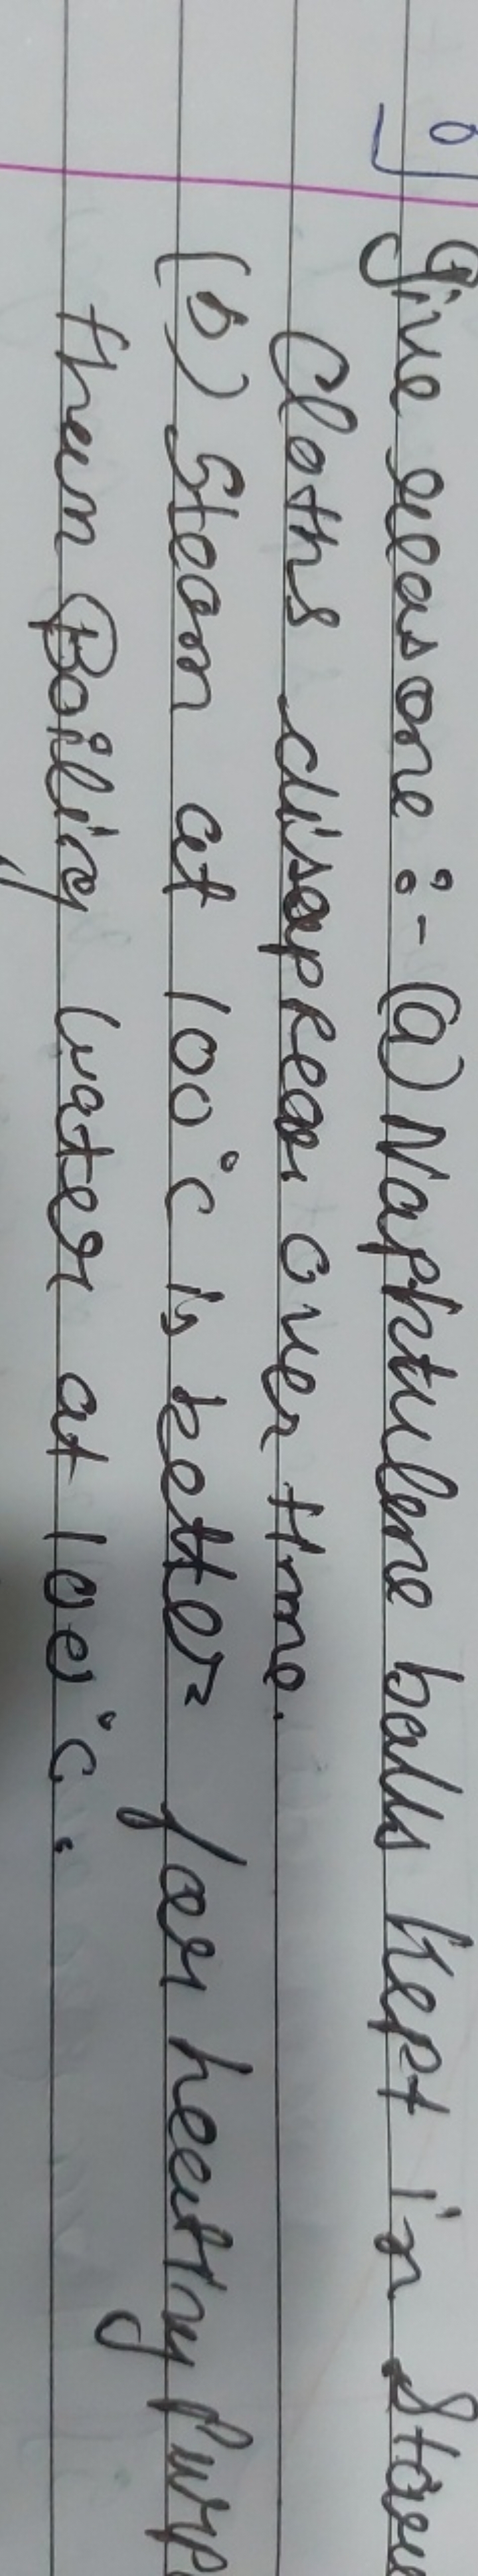 Give reasone :- (a) Naphtulene balls kept in
Cloths disappear over time.
(b) Steam at 100°C is better for heating Purp
than Boiling water at 100°C.